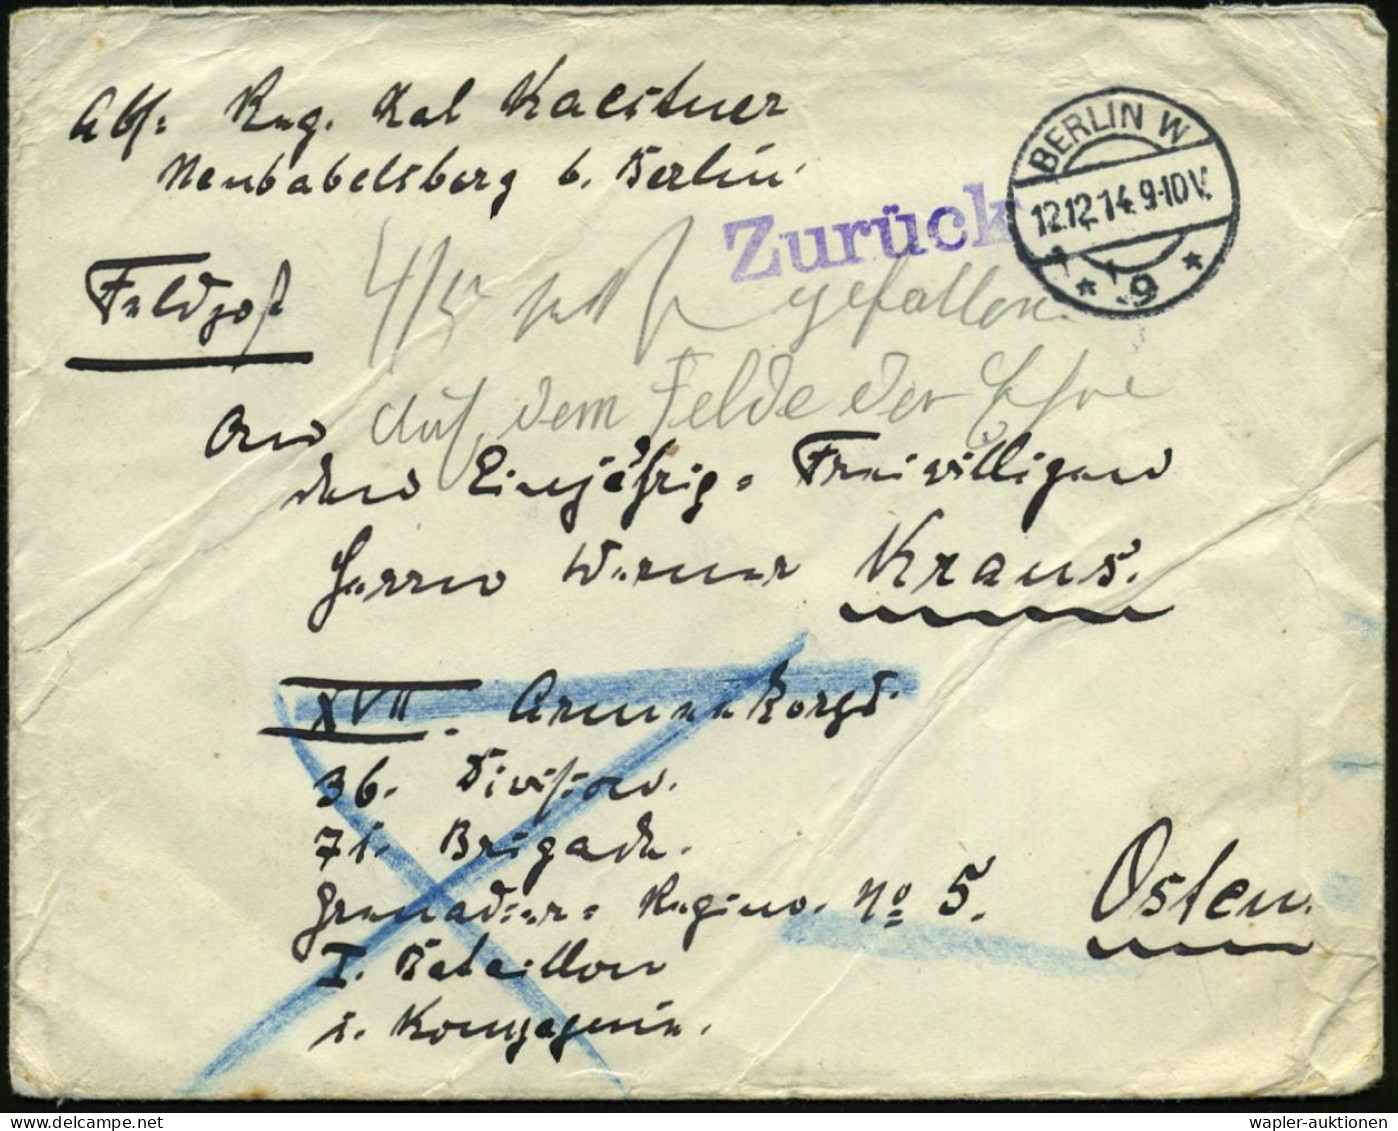 Abs: Reg. Rat Kaestner
Neubabelsberg b. Berlin
BERLIN W
12.12.14.9-10V.
* 9 *
Zurück
Feldpost
gefallen
auf dem Felde der Ehre
An
den Einjährig-Freiwilligen
Herrn Werner Kraus.
XVII. Armeekorps.
36. Division.
71. Brigade.
Grenadier-Regim. No 5.
Osten.
I. Bataillon
1. Kompagnie.
wapler-auktionen